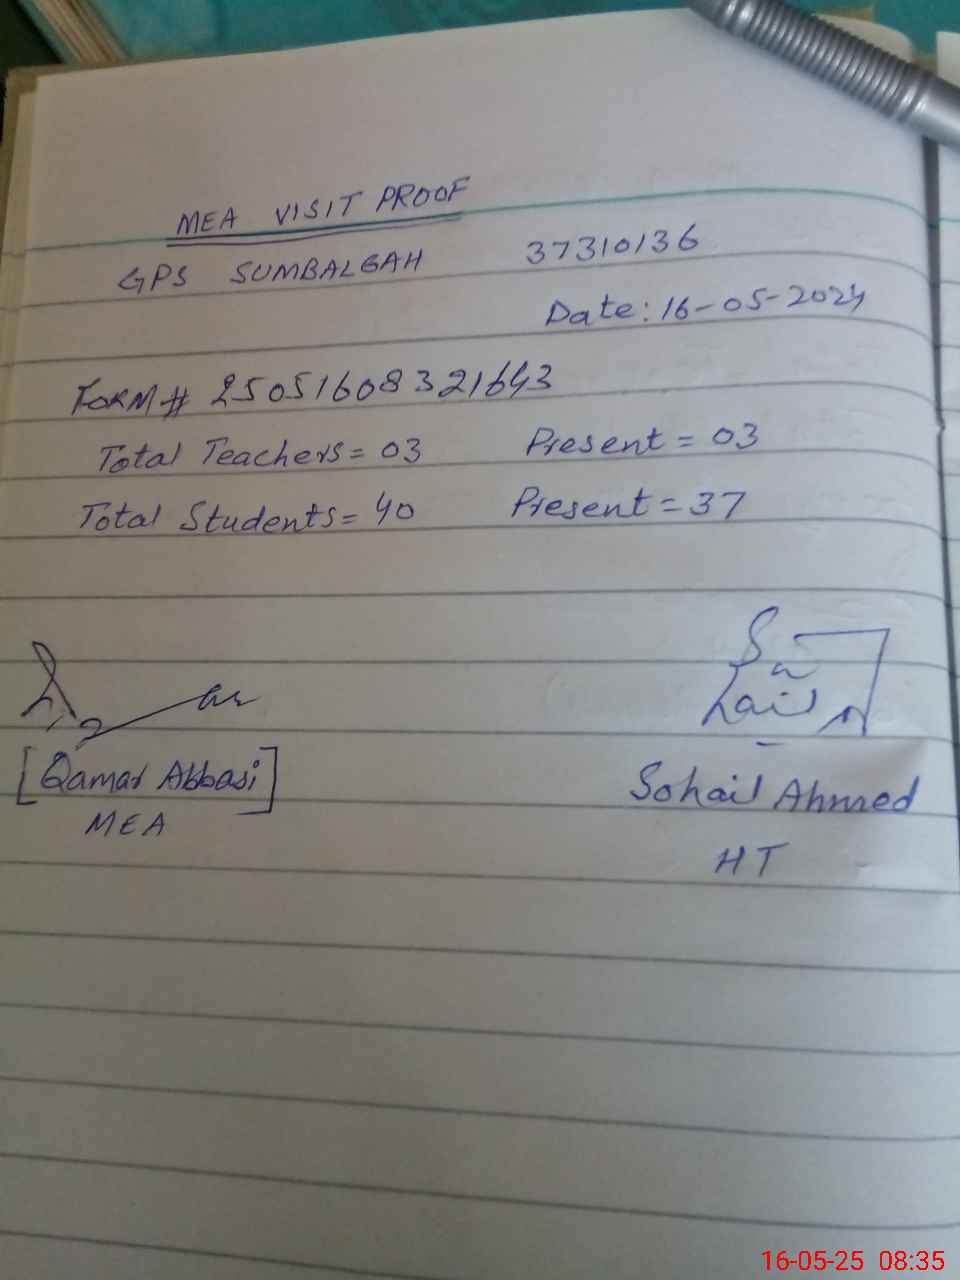 MEA VISIT PROOF
GPS SUMBALGAH 37310136
Date: 16-05-2024
FORM # 25051608321643
Total Teachers = 03 Present = 03
Total Students = 40 Present = 37
Sohail A
[Qamar Abbasi] Sohail Ahmed
MEA HT
16-05-25 08:35